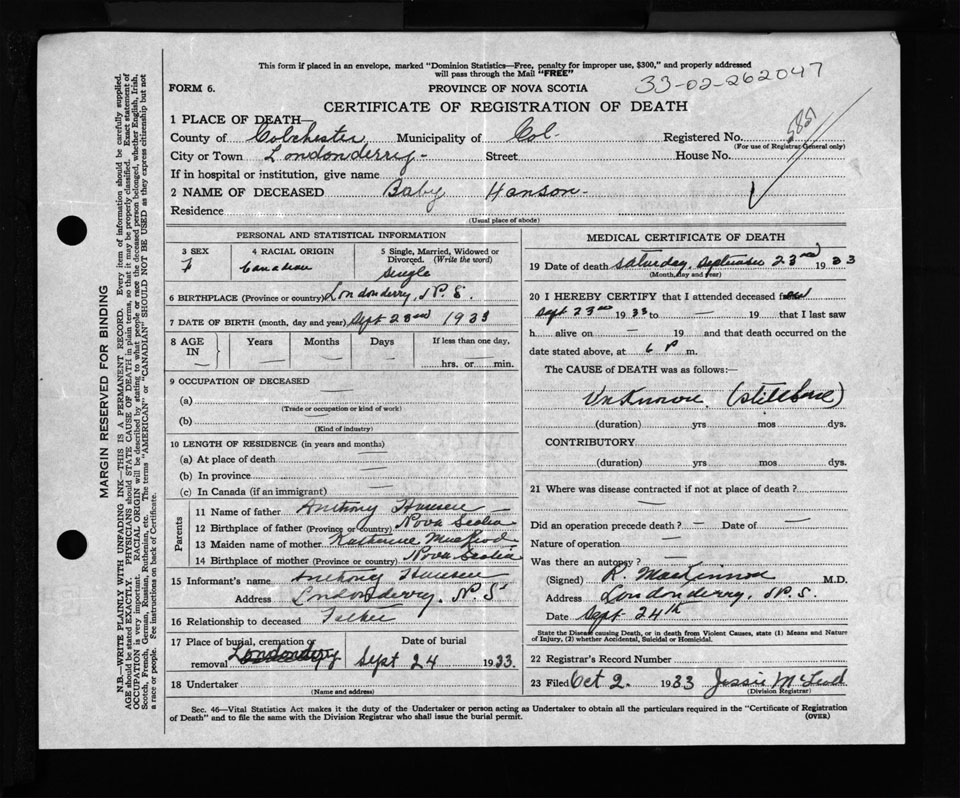 This form if placed in an envelope, marked "Dominion Statistics—Free, penalty for improper use, $300," and properly addressed
will pass through the Mail "FREE"
33-02-262047
FORM 6.
PROVINCE OF NOVA SCOTIA
CERTIFICATE OF REGISTRATION OF DEATH
1 PLACE OF DEATH—
County of Colchester Municipality of Col- Registered No. 5851
(For use of Registrar General only)
City or Town Londonderry- Street House No.
If in hospital or institution, give name
2 NAME OF DECEASED Baby Hanson-
Residence
(Usual place of abode)
PERSONAL AND STATISTICAL INFORMATION
3 SEX 4 RACIAL ORIGIN 5 Single, Married, Widowed or
Divorced. (Write the word)
F Canadian Single
6 BIRTHPLACE (Province or country) Londonderry, N.S.
7 DATE OF BIRTH (month, day and year) Sept 23rd 1933
8 AGE Years Months Days If less than one day,
IN — — — — hrs. or — min.
9 OCCUPATION OF DECEASED —
(a)
(Trade or occupation or kind of work)
(b) —
(Kind of industry)
10 LENGTH OF RESIDENCE (in years and months)
(a) At place of death —
(b) In province —
(c) In Canada (if an immigrant) —
Parents
11 Name of father Anthony Hansen
12 Birthplace of father (Province or country) Nova Scotia
13 Maiden name of mother Katherine MacLeod
14 Birthplace of mother (Province or country) Nova Scotia
15 Informant's name Anthony Hansen
Address Londonderry, N.S.
16 Relationship to deceased Father
17 Place of burial, cremation or Date of burial
removal Londonderry Sept 24 1933.
18 Undertaker
(Name and address)
MEDICAL CERTIFICATE OF DEATH
19 Date of death Saturday, September 23rd 1933
(Month, day and year)
20 I HEREBY CERTIFY that I attended deceased from
Sept 23rd 1933 to — 19 that I last saw
h alive on — 19 and that death occurred on
date stated above, at 6 P m.
The CAUSE of DEATH was as follows:—
Unknown. (stillborn)
(duration) yrs mos dys.
CONTRIBUTORY
(duration) yrs mos dys.
21 Where was disease contracted if not at place of death?
—
Did an operation precede death? — Date of —
Nature of operation —
Was there an autopsy? —
(Signed) R. MacKinnon M.D.
Address Londonderry, N.S.
Date Sept 24th
State the Disease causing Death, or in death from Violent Causes, state (1) Means and Nature
of Injury, (2) whether Accidental, Suicidal or Homicidal.
22 Registrar's Record Number
23 Filed Oct 2. 1933 Jessie McLeod
(Division Registrar)
Sec. 46—Vital Statistics Act makes it the duty of the Undertaker or person acting as Undertaker to obtain all the particulars required in the "Certificate of Registration
of Death" and to file the same with the Division Registrar who shall issue the burial permit.
(OVER)
MARGIN RESERVED FOR BINDING
N.B.—WRITE PLAINLY WITH UNFADING INK—THIS IS A PERMANENT RECORD. Every item of information should be carefully supplied.
AGE should be stated EXACTLY. PHYSICIANS should STATE CAUSE OF DEATH in plain terms, so that it may be properly classified. Exact statement of
OCCUPATION is very important. RACIAL ORIGIN will be described by stating to what people or race the deceased person belonged, whether English, Irish,
Scotch, French, German, Russian, Ruthenian, etc. The terms "AMERICAN" or "CANADIAN" SHOULD NOT BE USED as they express citizenship but not
a race or people. See instructions on back of Certificate.